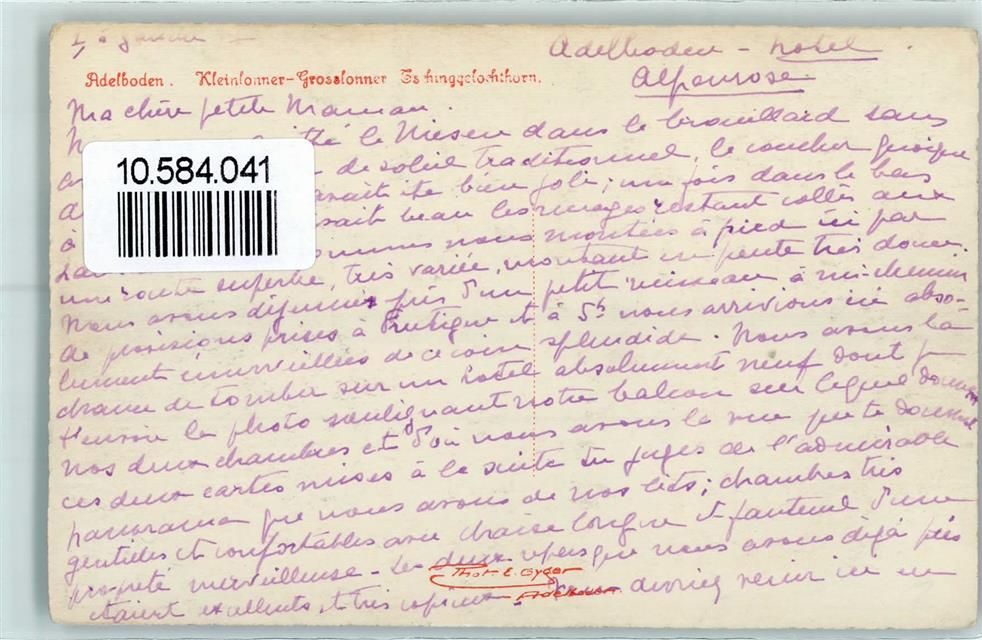 Adelboden - Hotel
Alpenrose
Adelboden. Kleinlonner-Grosslonner Tschinggelochthorn.
Ma chère petite Maman.
le Niesen dans le brouillard sans
de soleil traditionnel, le coucher quoique
été bien joli; une fois dans le bas
beau les nuages restant collés aux
10.584.041
sommes nous montées à pied ici par
une route superbe, très variée, montant en pente très douce.
Nous avons déjeuné près d'un petit ruisseau à mi-chemin
de provisions prises à Frutigen et à 5h nous arrivions ici abso-
lument émerveillées de ce coin splendide. Nous avons la
chance de tomber sur un hotel absolument neuf dont je
t'envoie la photo soulignant notre balcon sur lequel donnent
nos deux chambres et d'où nous avons la vue que te donnent
ces deux cartes mises à la suite tu juges de l'admirable
panorama que nous avons de nos lits; chambres très
gentilles et confortables avec chaise longue et fauteuil d'une
propreté merveilleuse - Les deux repas que nous avons déjà pris
étaient excellents, et très copieux - devriez venir ici en
Phot. E. Gyger
Adelboden